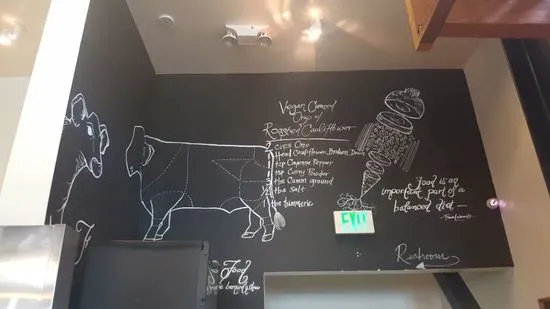 Vegan Curried
Orzo w/
Roasted Cauliflower
2 cups Orzo
1 Head Cauliflower, Broken Down
1 tsp Cayenne Pepper
1 tsp Curry Powder
3 tbs Cumin ground
1/2 tbs Salt
1 tbs turmeric
Food is an
important part of a
balanced diet —
EXIT
Restroom
Food